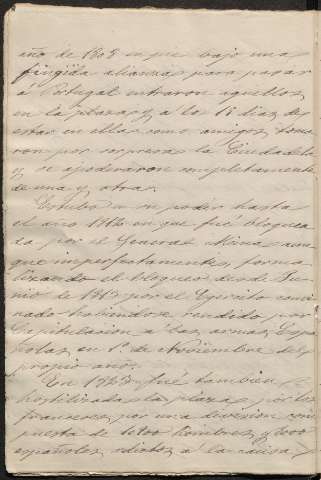 año de 1808 en que bajo una
fingida alianza para pasar
a Portugal entraron aquellos
en la plaza, y a los 15 dias de
estar en ella como amigos toma
ron por sorpresa la Ciudadela
y se apoderaron completamente
de una y otra.
Estubo en su poder hasta
el año 1813 en que fué bloquea
da por el General Mina aun
que imperfectamente, forma
lizando el bloqueo desde Ju
nio de 1813 por el Ejercito combi
nado habiendose rendido por
Capitulacion á las armas Espa
ñolas en 1º de Noviembre del
propio año.
En 1823 fué tambien
hostilizada la plaza por los
franceses por una division com
puesta de hombres y 2000
españoles adictos a la causa